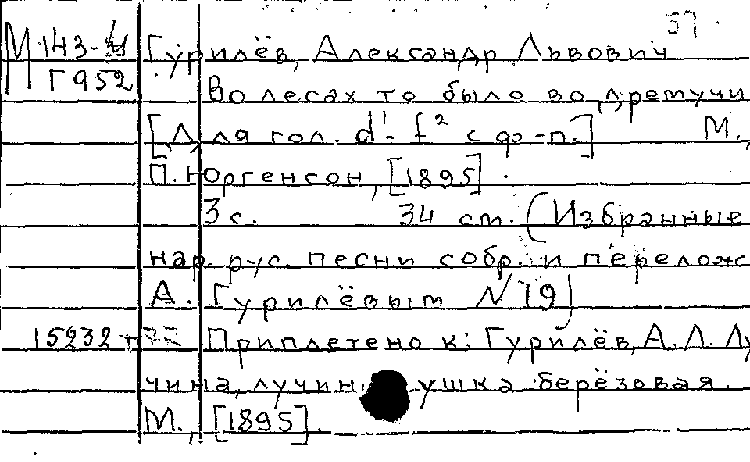 57.
М 143-4 Гурилёв, Александр Львович
Г 952 Во лесах то было во дремучи
[Для гол. d¹- f² с ф-п.] М.,
П. Юргенсон, [1895].
3 с. 34 см. (Избранные
нар. рус. песни собр. и перелож
А. Гурилёвым N 19)
15232 Приплетено к: Гурилёв, А. Л. Лу
чина, лучинушка берёзовая.
М., [1895].